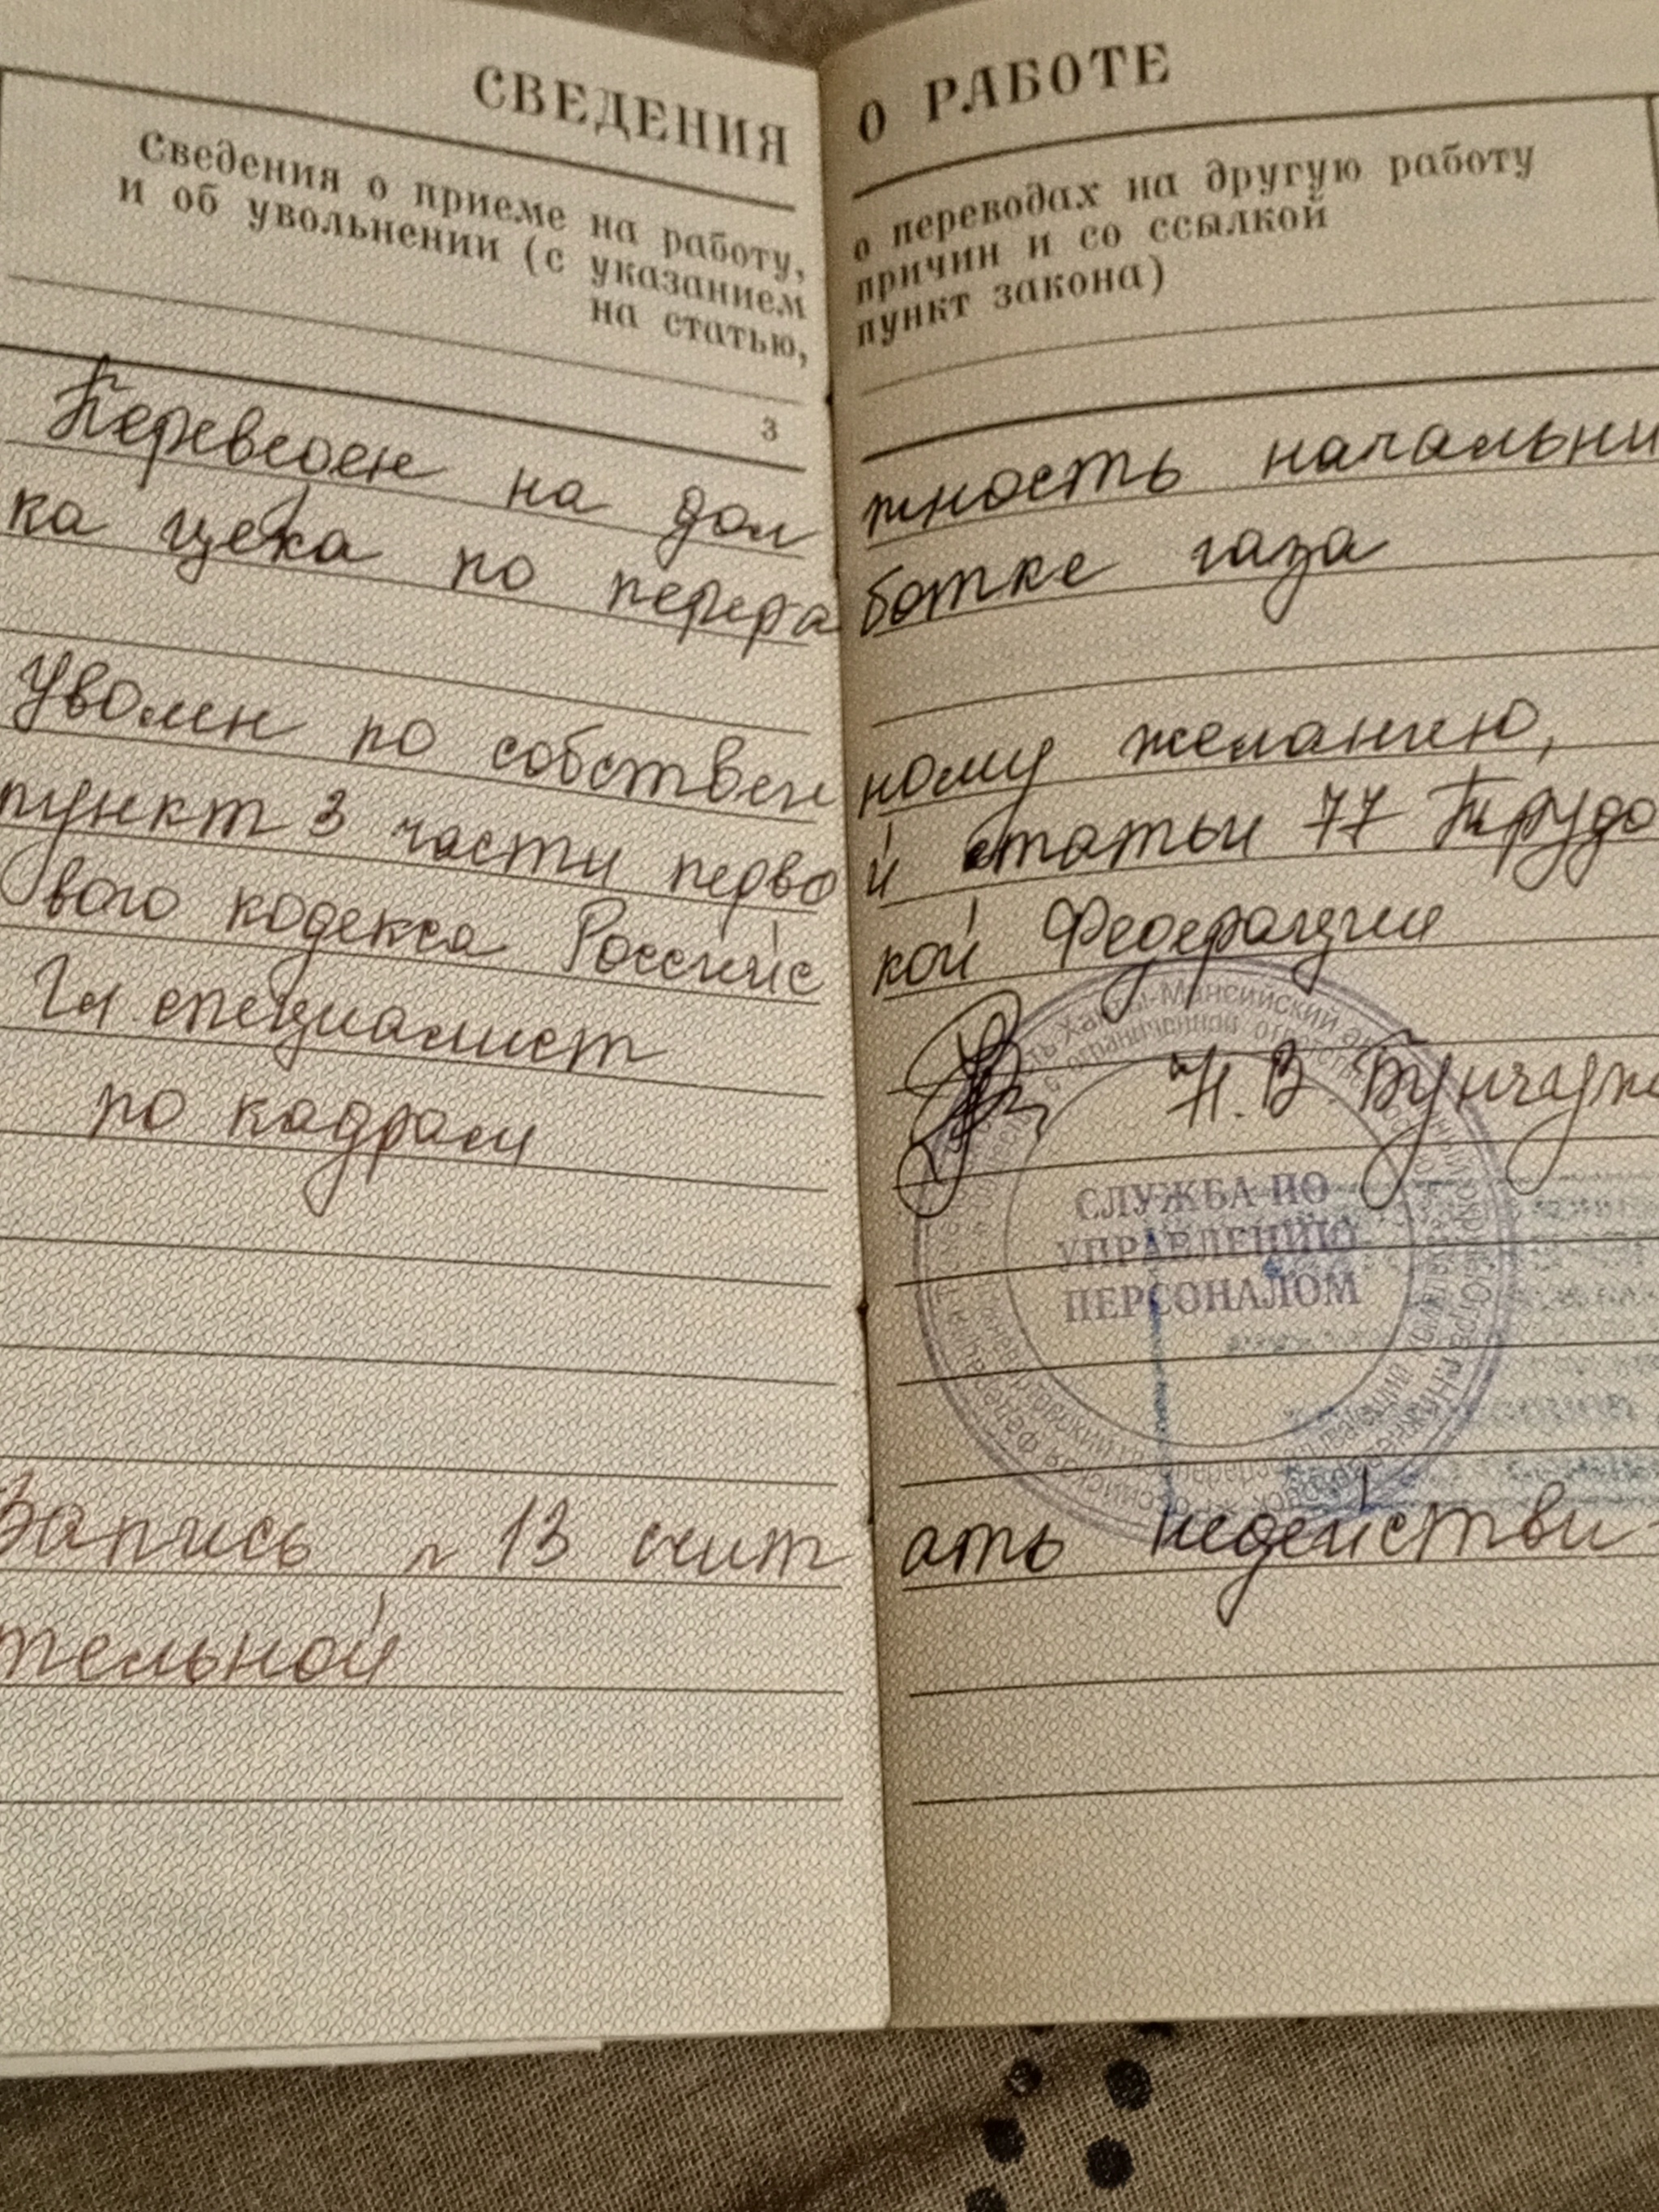 СВЕДЕНИЯ О РАБОТЕ
Сведения о приеме на работу, о переводах на другую работу
и об увольнении (с указанием причин и со ссылкой
на статью, пункт закона)
3
Переведен на должность начальни
ка цеха по переработке газа
Уволен по собственному желанию,
пункт 3 части первой статьи 77 Трудо
вого кодекса Российской Федерации
Гл. специалист
по кадрам
Н.В.
СЛУЖБА ПО
УПРАВЛЕНИЮ
ПЕРСОНАЛОМ
Ханты-Мансийский
с ограниченной
Запись № 13 считать недействи-
тельной